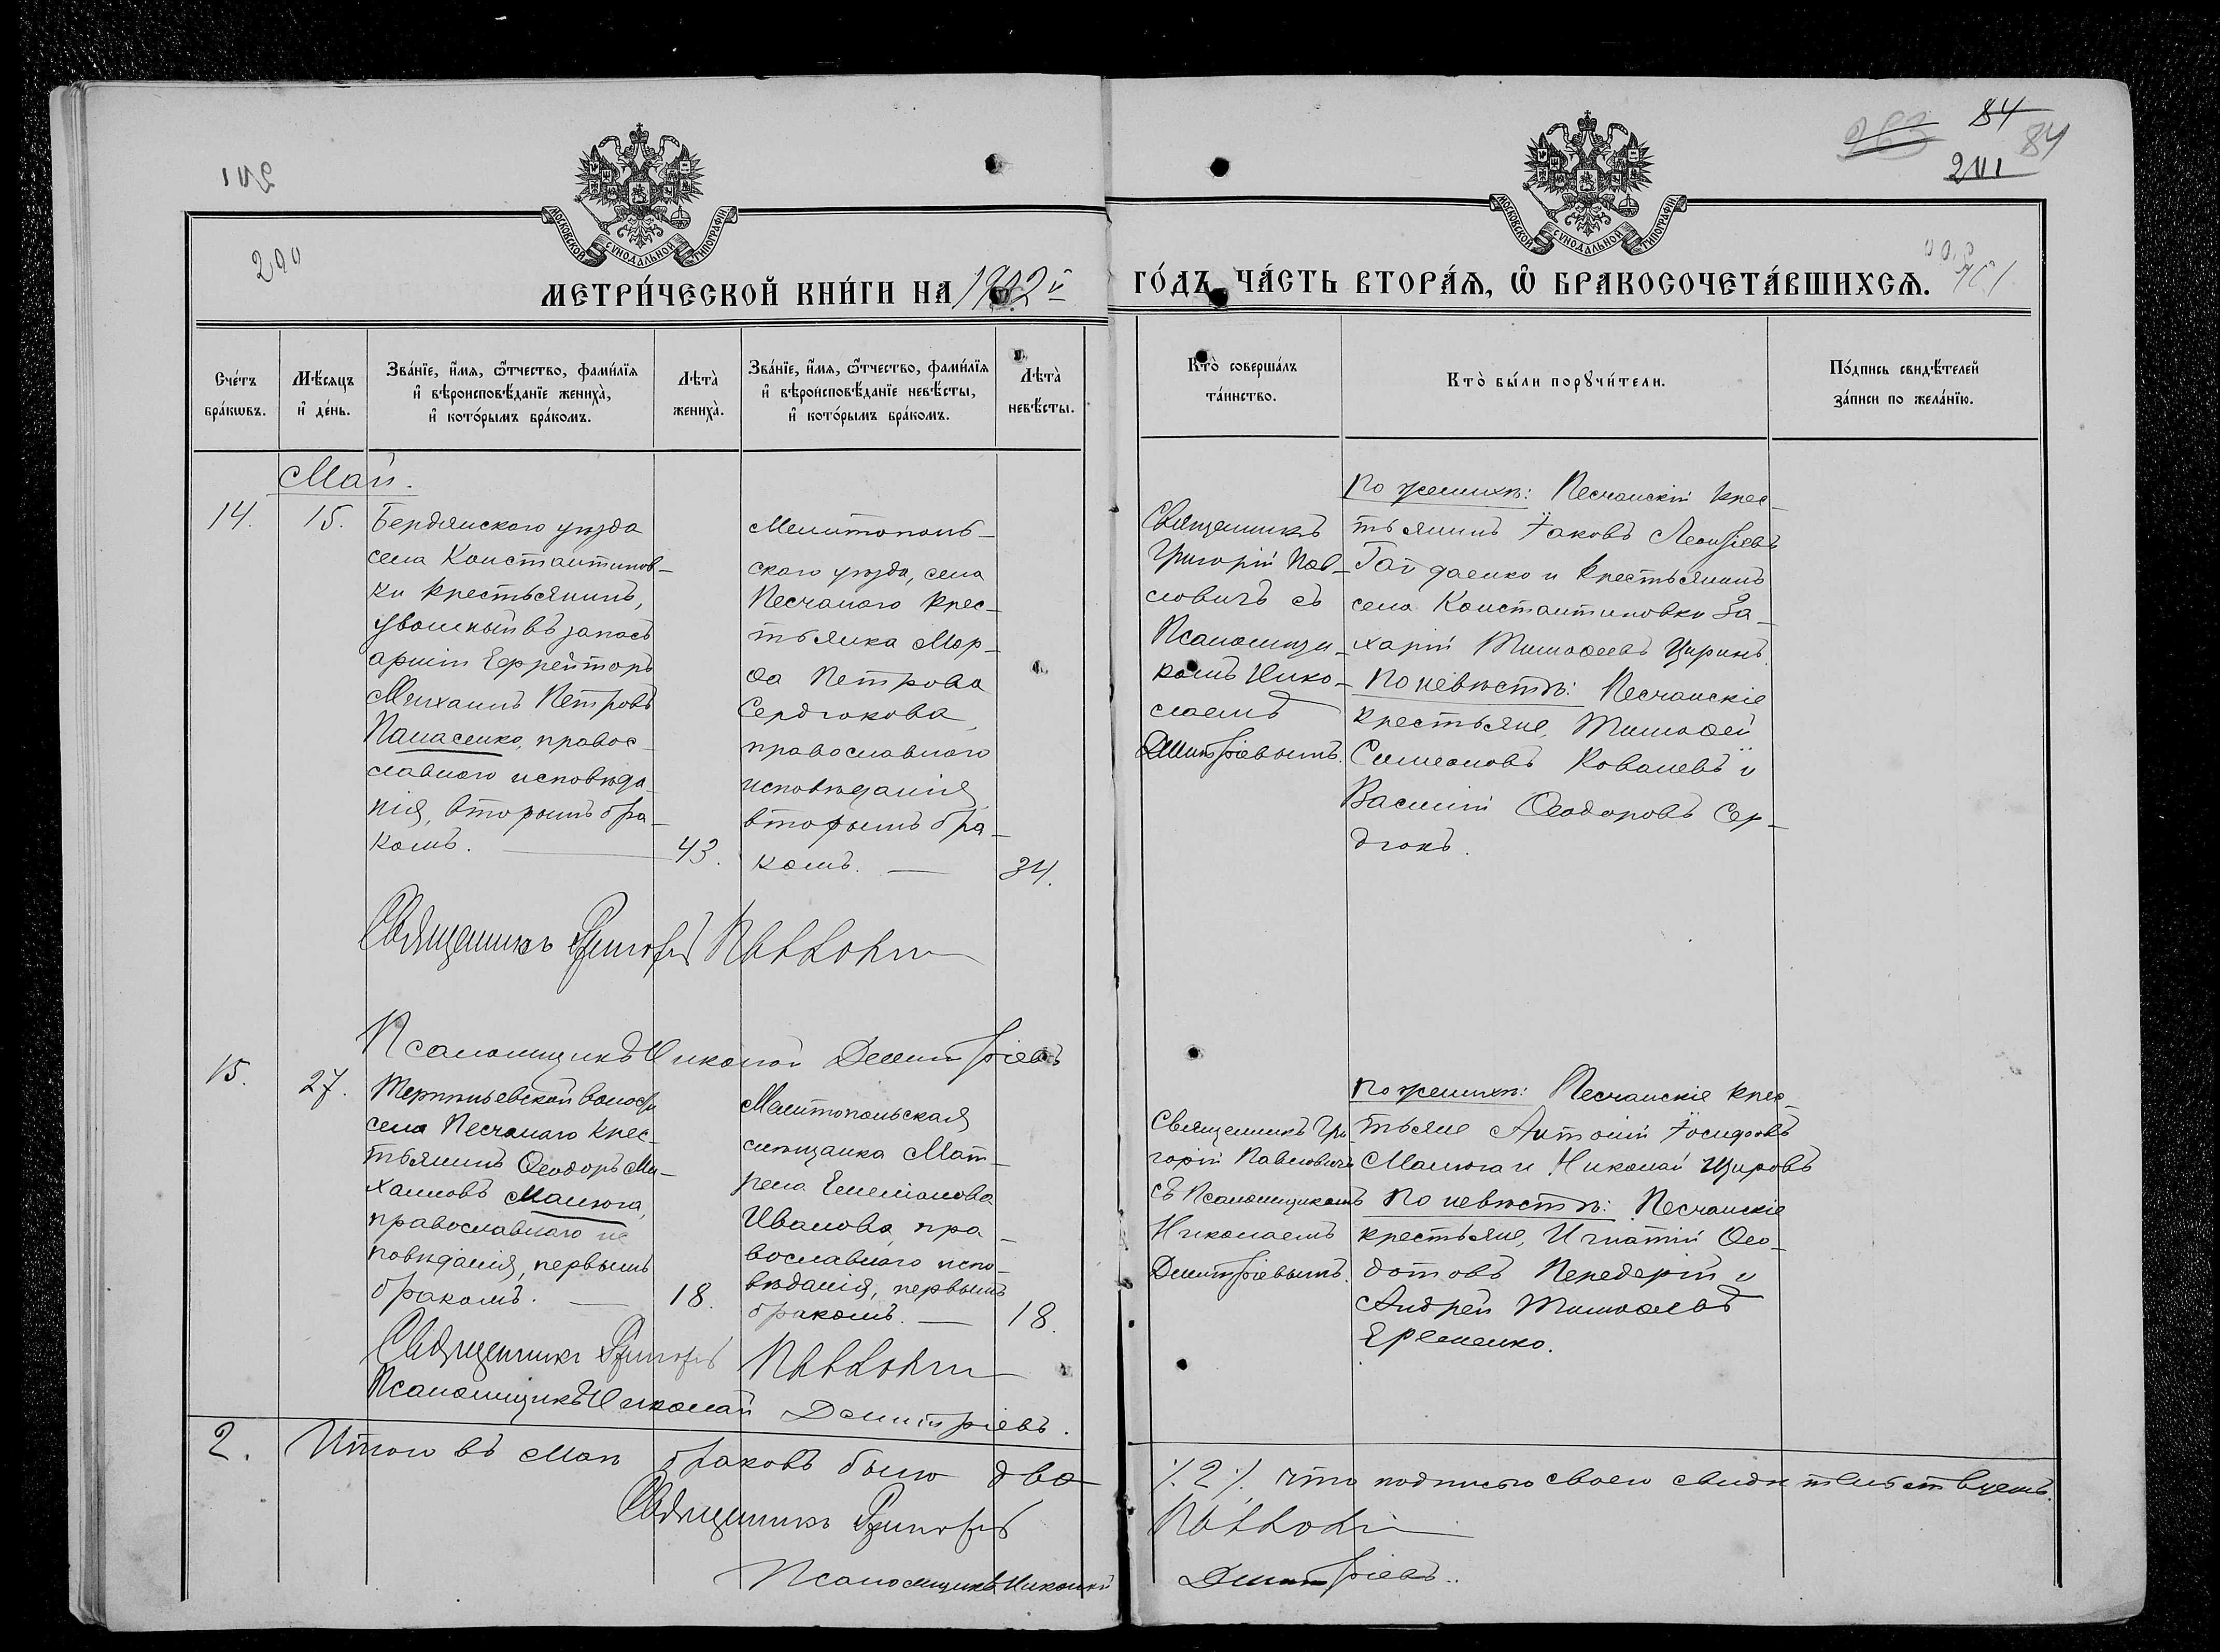 84
84
201
290
МОСКОВСКОЙ СУНОДАЛЬНОЙ ТИПОГРАФІИ
МОСКОВСКОЙ СУНОДАЛЬНОЙ ТИПОГРАФІИ
МЕТРИ́ЧЕСКОЙ КНИ́ГИ НА 1902й
ГО́ДЪ, ЧА́СТЬ ВТОРА́Ѧ, Ѽ БРАКОСОЧЕТА́ВШИХСѦ.
Сче́тъ
бра́кѡвъ.
Мѣ́сѧцъ
и҆ де́нь.
Зва́нїе, и҆́мѧ, ѻ҆́тчество, фами́лїѧ
и҆ вѣроисповѣ́данїе жениха̀,
и҆ кото́рымъ бра́комъ.
Лѣта̀
жениха̀.
Зва́нїе, и҆́мѧ, ѻ҆́тчество, фами́лїѧ
и҆ вѣроисповѣ́данїе невѣ́сты,
и҆ кото́рымъ бра́комъ.
Лѣта̀
невѣ́сты.
Кто̀ соверша́лъ
та́инство.
Кто̀ бы́ли порꙋчи́тели.
По́дпись свидѣ́телей
за́писи по жела́нїю.
Май.
14.
15.
Бердянскаго уѣзда
села Константинов-
ки крестьянинъ,
уволеный въ запасъ
арміи Ефрейторъ
Михаилъ Петровъ
Панасенко, правос-
лавнаго исповѣда-
нія, вторымъ бра-
комъ.
43.
Мелитополь-
скаго уѣзда, села
Песчанаго крес-
тьянка Мар-
ѳа Петрова
Сердюкова,
православнаго
исповѣданія,
вторымъ бра-
комъ.
34.
Священникъ
Григорій Пав-
ловичъ съ
Псаломщи-
комъ Нико-
лаемъ
Димитріевымъ.
По женихѣ: Песчанскій крес-
тьянинъ Іаковъ Леонтіевъ
Гайдаенко и крестьянинъ
села Константиновки За-
харій Тимоѳеевъ Циринъ.
По невѣстѣ: Песчанскіе
крестьяне, Тимоѳей
Симеоновъ Ковалевъ и
Василій Ѳеодоровъ Сер-
дюкъ.
Священникъ Григорій Павловичъ
Псаломщикъ Николай Димитріевъ
15.
27.
Терпѣньевской волости
села Песчанаго крес-
тьянинъ Ѳеодоръ Ми-
хаиловъ Малюга,
православнаго ис
повѣданія, первымъ
бракомъ.
18.
Мелитопольская
мѣщанка Мат-
рена Емеліанова
Иванова, пра-
вославнаго испо-
вѣданія, первымъ
бракомъ.
18.
Священникъ Гри-
горій Павловичъ
съ Псаломщикомъ
Николаемъ
Димитріевымъ.
По женихѣ: Песчанскіе крес-
тьяне Антоній Іосифовъ
Малюга и Николай Щировъ
По невѣстѣ: Песчанскіе
крестьяне, Игнатій Ѳео-
дотовъ Передерій и
Андрей Тимоѳеевъ
Еременко.
Священникъ Григорій Павловичъ
Псаломщикъ Николай Димитріевъ.
2.
Итого въ Маѣ браковъ было два
٪2٪, что подписью своею свидѣтельствуемъ.
Священникъ Григорій Павловичъ
Псаломщикъ Николай Димитріевъ.